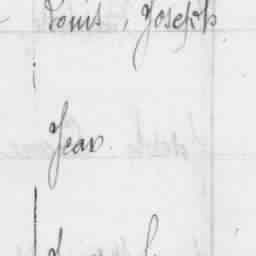 Louis, Joseph
Jean